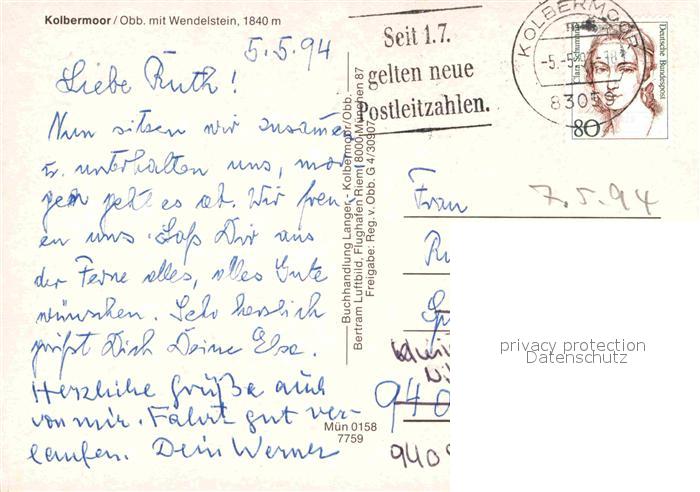 Kolbermoor / Obb. mit Wendelstein, 1840 m
5.5.94
Liebe Ruth!
Nun sitzen wir zusammen
u. unterhalten uns, mor-
gen geht es ab. Wir freu-
en uns. Laß Dir aus
der Ferne alles, alles Gute
wünschen. Sehr herzlich
grüßt Dich Deine Else.
Herzliche Grüße auch
von mir. Fahrt gut ver-
laufen. Dein Werner
Buchhandlung Langer - Kolbermoor/Obb.
Bertram Luftbild, Flughafen Riem, 8000 München 87
Freigabe: Reg. v. Obb. G 4/30907
Mün 0158
7759
Seit 1.7.
gelten neue
Postleitzahlen.
KOLBERMOOR
83059
Deutsche Bundespost
80
Frau
7.5.94
Ru
940
9409
privacy protection
Datenschutz